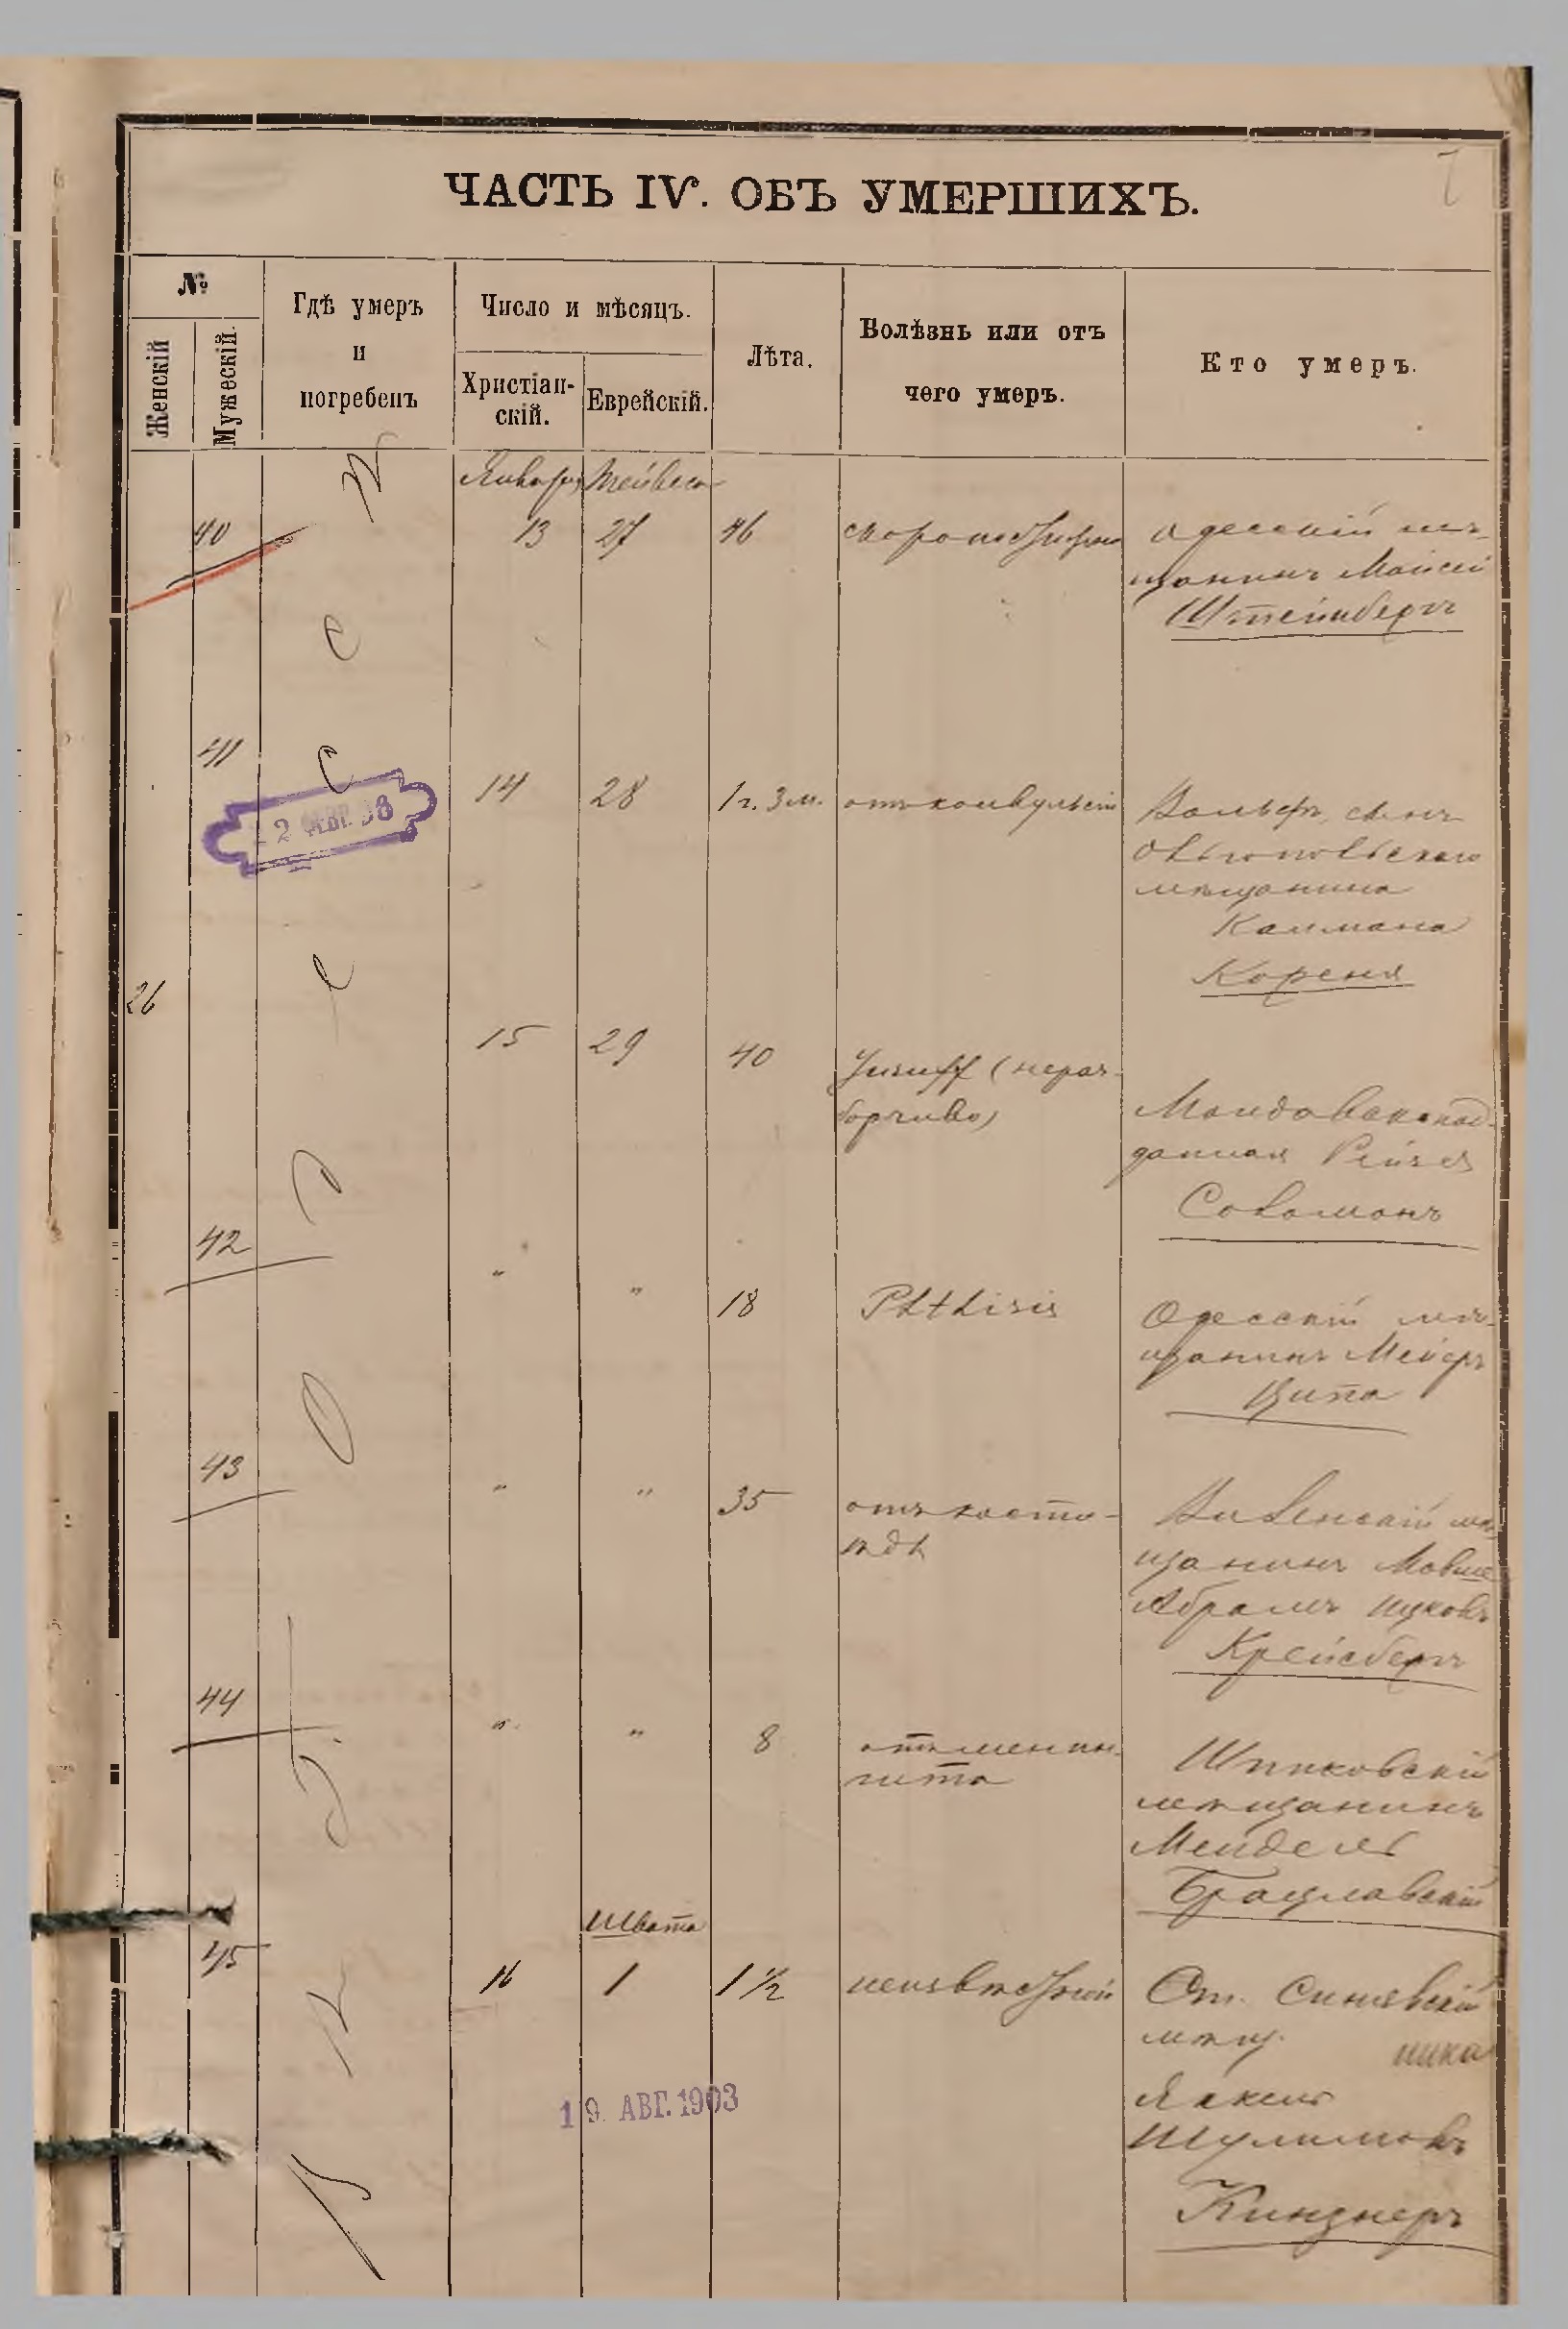 7
ЧАСТЬ IV. ОБЪ УМЕРШИХЪ.
№
Женскій
Мужескій.
Гдѣ умеръ
и
погребенъ
Число и мѣсяцъ.
Христіан-
скій.
Еврейскій.
Лѣта.
Болѣзнь или отъ
чего умеръ.
Кто умеръ.
Января Тейвеса
40 13 27 46 скоропостижно Одесскій мѣ-
щанинъ Мойсей
Штейнбергъ
41 14 28 1 г. 3 м. отъ конвульсій Вольфъ, сынъ
22 ФЕВР.
Ольгопольскаго
мѣщанина
Калмана
Кореня
26 15 29 40 (нераз-
борчиво) Молдавскопод-
данная Рейзя
Соломонъ
42 " " 18 Phthisis Одесскій мѣ-
щанинъ Мейеръ
43 " " 35 Виленскій мѣ-
щанинъ Мовше
Абрамъ Ицковъ
Крейсбергъ
44 " " 8 отъ менин-
гита Шпиковскій
мѣщанинъ
Мендель
Брацлавскій
Швата
45 16 1 1 ½ неизвѣстной Синявскій
мѣщ.
Шулимовъ
19. АВГ. 1903
Кинднеръ
Въ Одессѣ